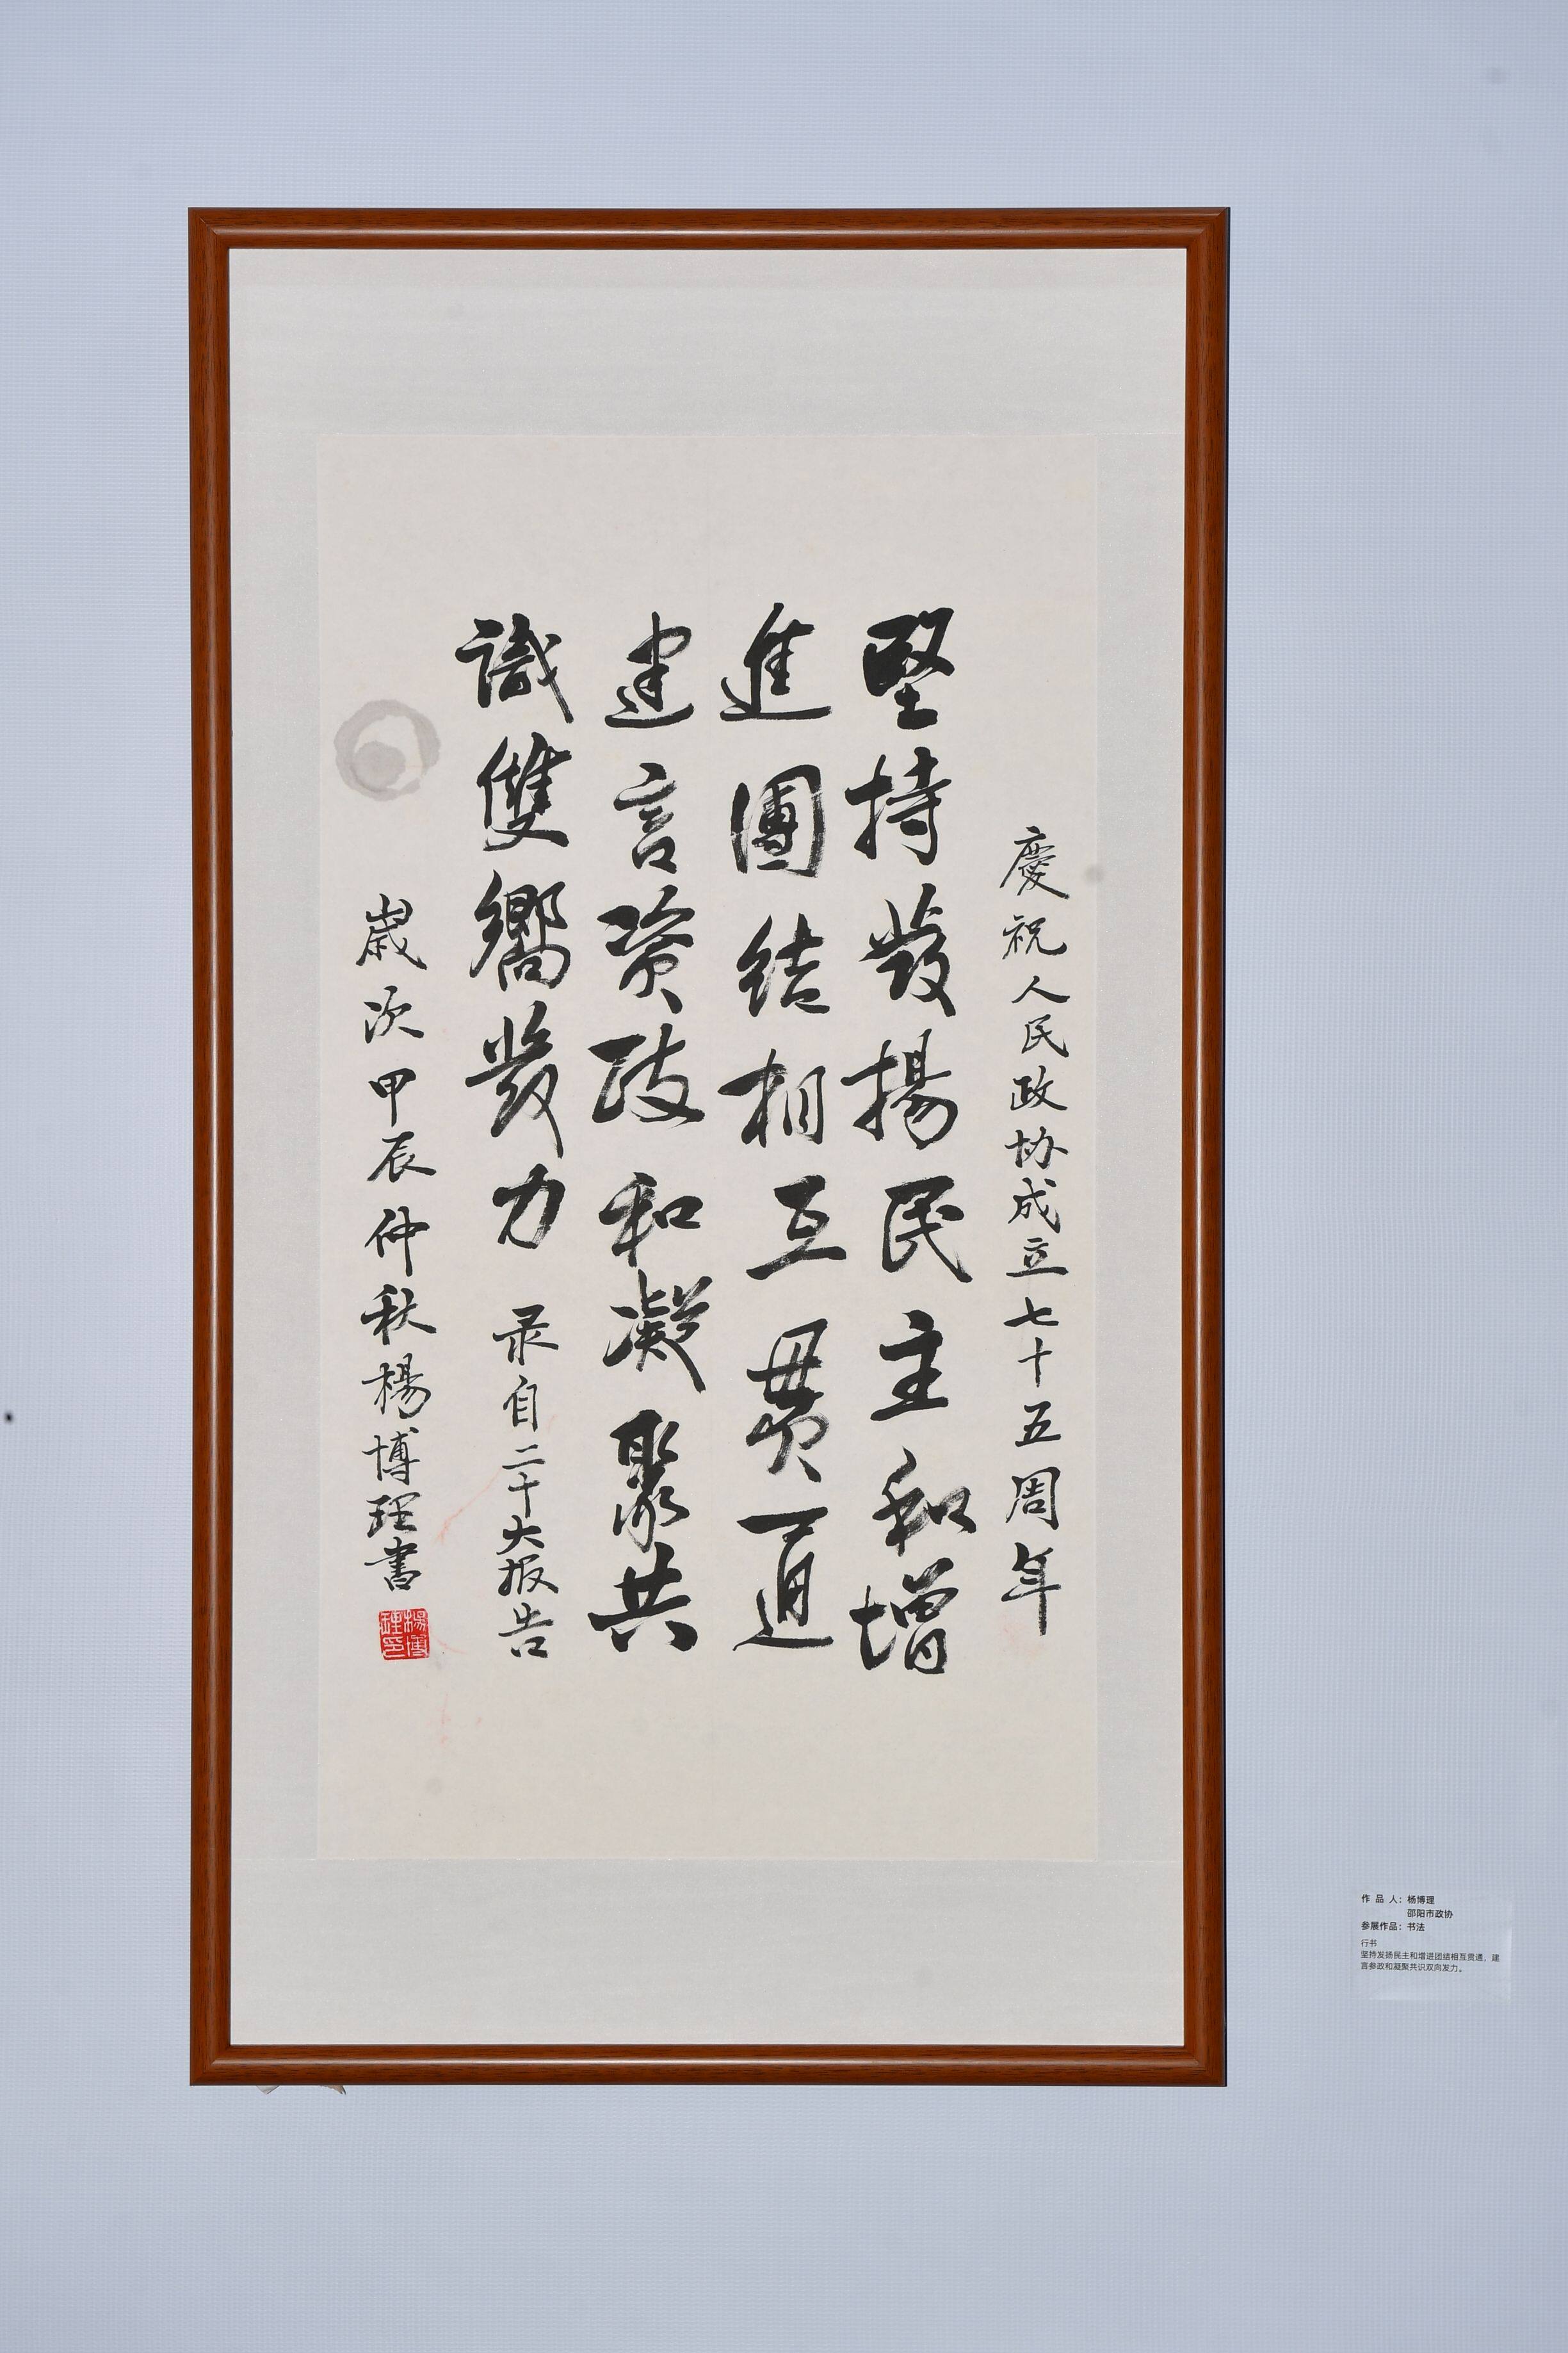 慶祝人民政协成立七十五周年
堅持發揚民主和增
進團結相互贯通
建言资政和凝聚共
識雙嚮發力 录自二十大报告
歲次甲辰仲秋楊博理書
楊博理印
作 品 人：杨博理
邵阳市政协
参展作品：书法
行书
坚持发扬民主和增进团结相互贯通，建
言参政和凝聚共识双向发力。